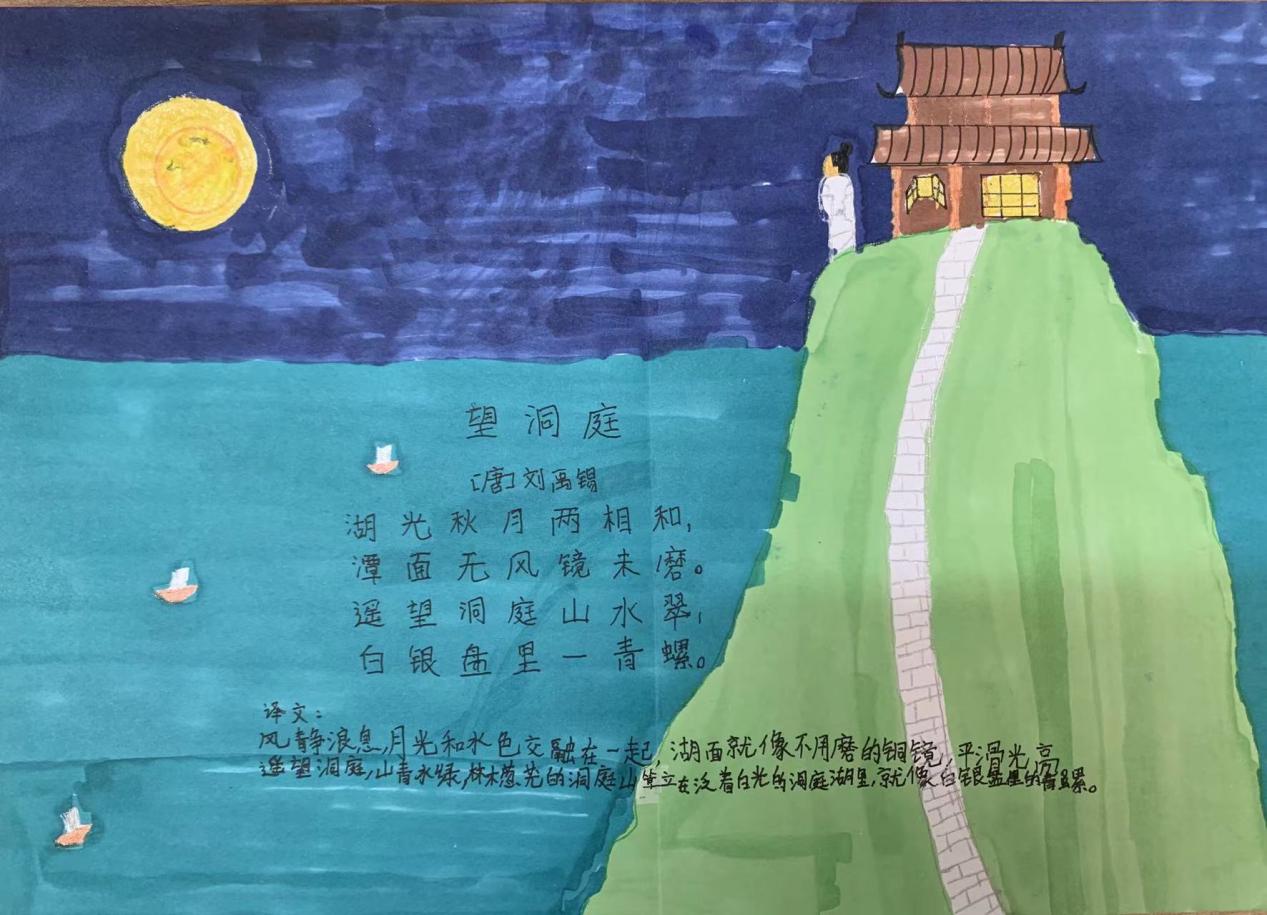 望洞庭
[唐]刘禹锡
湖光秋月两相和,
潭面无风镜未磨。
遥望洞庭山水翠,
白银盘里一青螺。
译文:
风静浪息,月光和水色交融在一起,湖面就像不用磨的铜镜,平滑光亮
遥望洞庭,山青水绿,林木葱茏的洞庭山耸立在泛着白光的洞庭湖里,就像白银盘里的青螺。